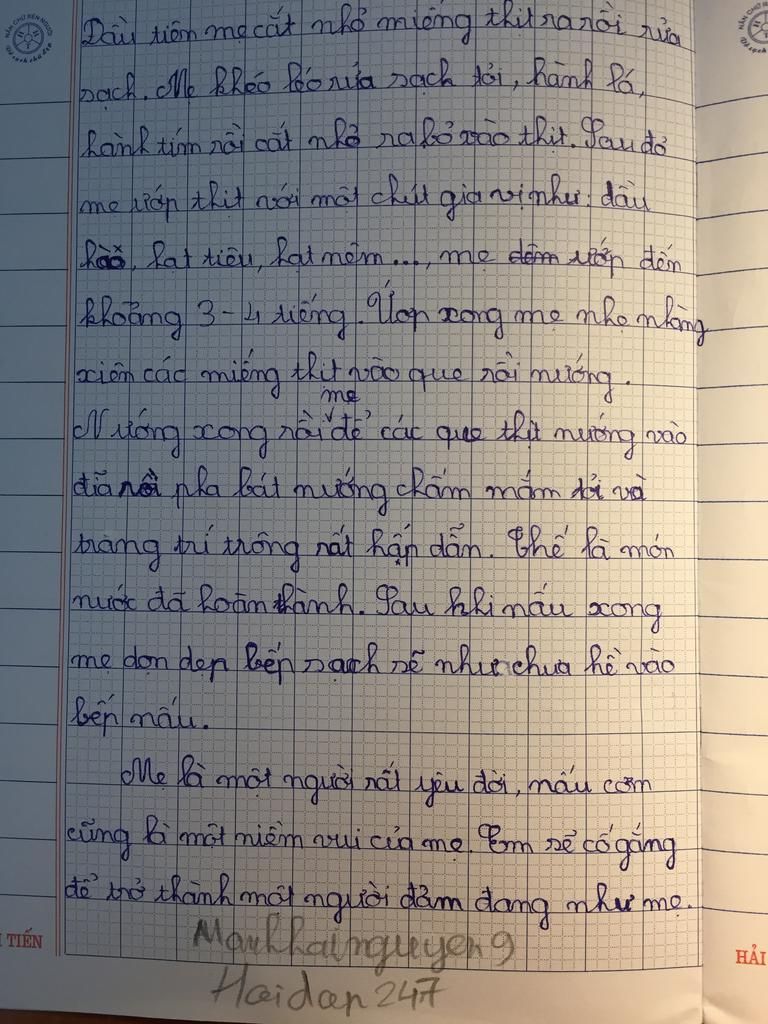 Đầu tiên mẹ cắt nhỏ miếng thịt ra rồi rửa
sạch. Mẹ khéo léo rửa sạch tỏi, hành lá,
hành tím rồi cắt nhỏ ra bỏ vào thịt. Sau đó
mẹ ướp thịt với một chút gia vị như: dầu
hào, hạt tiêu, hạt nêm..., mẹ đêm ướp đến
khoảng 3-4 tiếng. Ướp xong mẹ nhẹ nhàng
xiên các miếng thịt vào que rồi nướng.
mẹ
Nướng xong rồi ˅ để các que thịt nướng vào
đĩa rồi pha bát nướng chấm mắm tỏi và
trang trí trông rất hấp dẫn. Thế là món
nước đã hoàn thành. Sau khi nấu xong
mẹ dọn dẹp bếp sạch sẽ như chưa hề vào
bếp nấu.
Mẹ là một người rất yêu đời, nấu cơm
cũng là một niềm vui của mẹ. Em sẽ cố gắng
để trở thành một người đảm đang như mẹ.
TIẾN
HẢI
Manhhainguyen9
Hoidap247